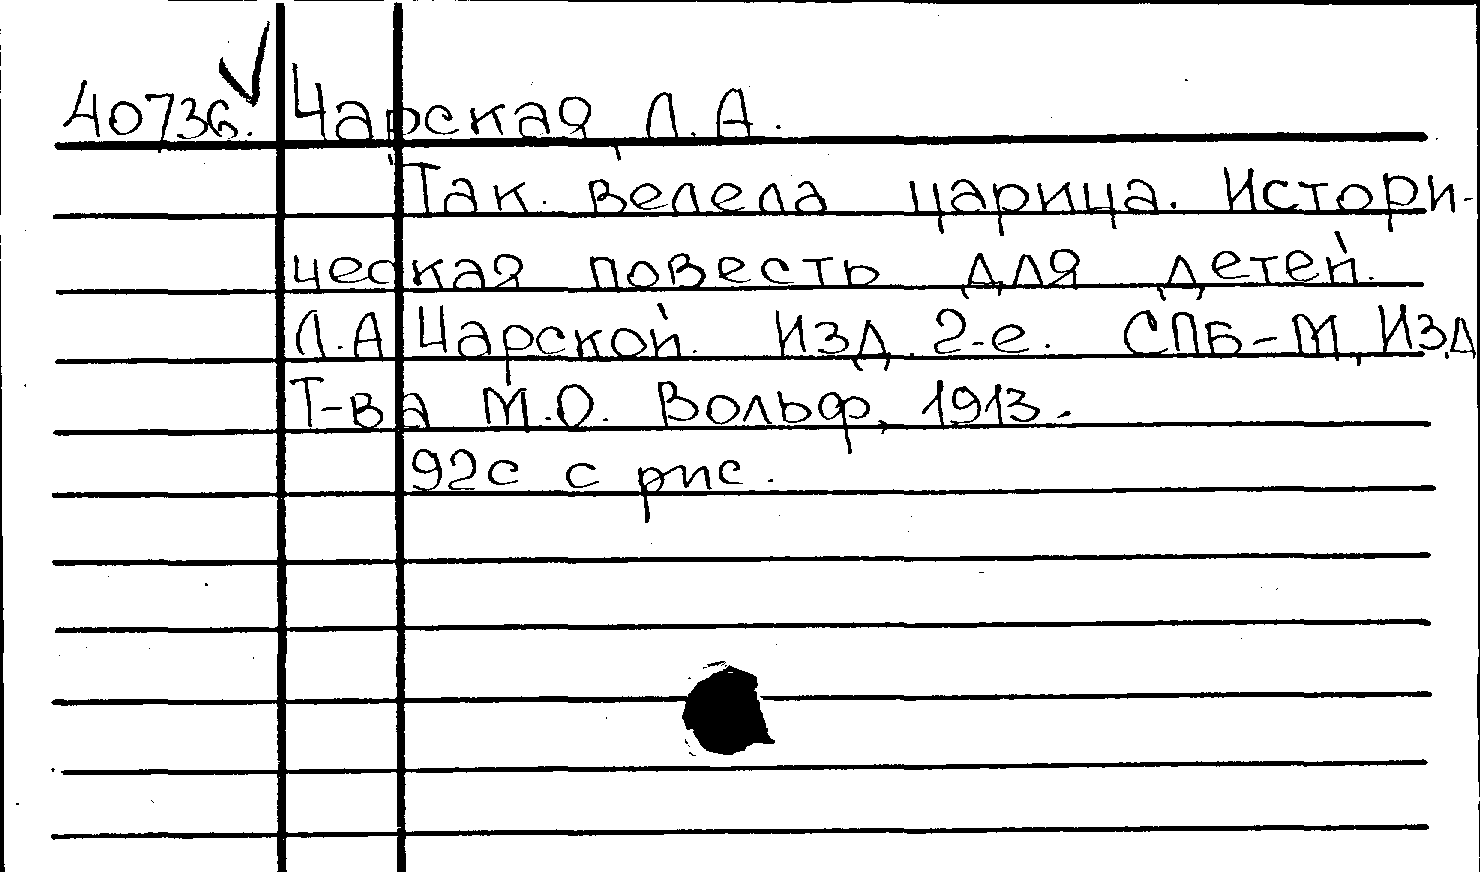 40736. Чарская, Л.А.
Так велела царица. Истори-
ческая повесть для детей.
Л.А Чарской. Изд. 2-е. СПБ-М, Изд
Т-ва М.О. Вольф, 1913.
92с с рис.